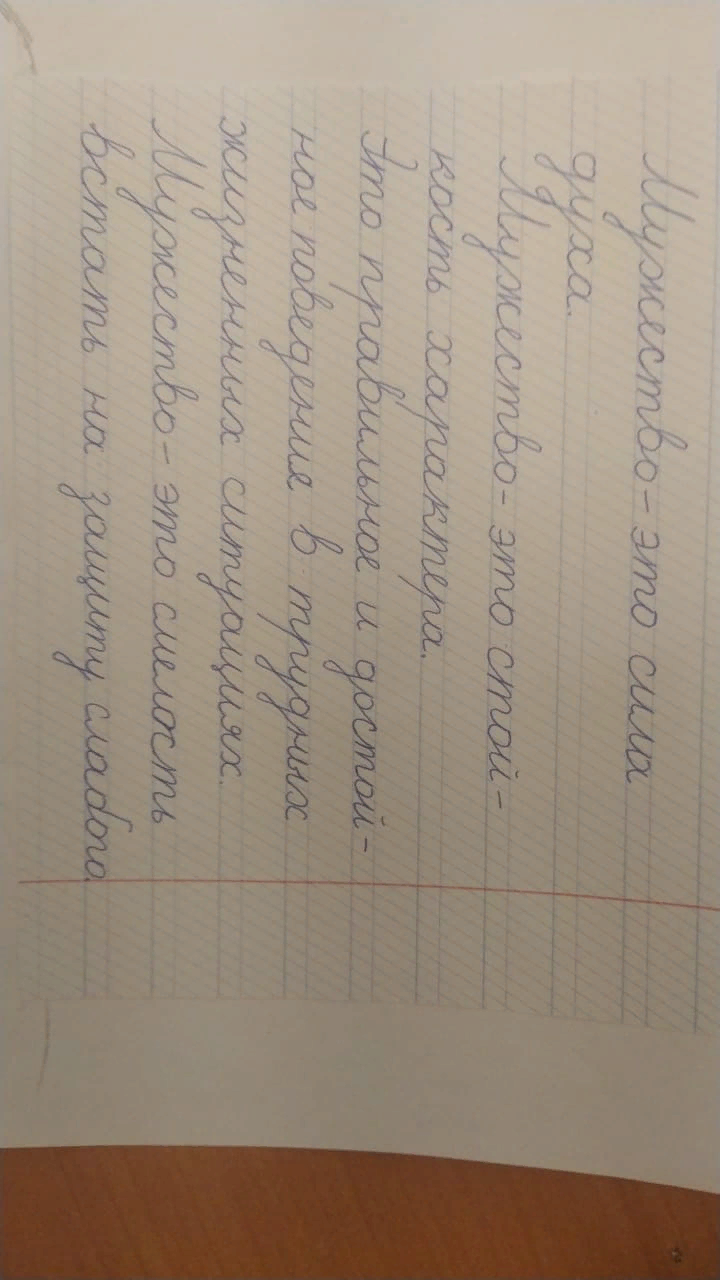 Мужество - это сила
духа.
Мужество - это стой-
кость характера.
Это правильное и достой-
ное поведения в трудных
жизненных ситуациях.
Мужество - это смелость
встать на защиту слабого.